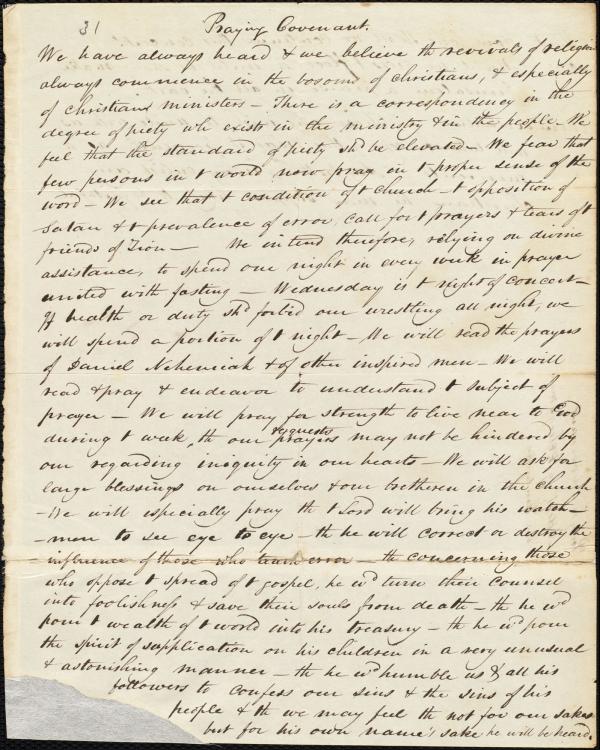 31 Praying Covenant.
We have always heard & we believe th revivals of religion
always commence in the bosoms of christians, & especially
of christian ministers – There is a correspondency in the
degree of piety wh exists in the ministry & in the people. We
feel that the standard of piety shd be elevated – We fear that
few persons in t world now pray in t proper sense of the
word – We see that t condition of t church – t opposition of
Satan & t prevalence of error, call for t prayers & tears of t
friends of Zion – We intend therefore, relying on divine
assistance, to spend one night in every week in prayer
united with fasting – Wednesday is t night of concert –
If health or duty shd forbid our wrestling all night, we
will spend a portion of t night – We will read the prayers
of Daniel Nehemiah & of other inspired men – We will
read & pray & endeavor to understand t subject of
prayer – We will pray for strength to live near to God
during t week, th our prayers requests may not be hindered by
our regarding iniquity in our hearts – We will ask for
large blessings on ourselves & our bretheren in the church
– We will especially pray th t Lord will bring his watch–
–men to see eye to eye – th he will correct or destroy the
influence of those who teach error – th concerning those
who oppose t spread of t gospel, he wd turn their counsel
into foolishness & save their souls from death – th he wd
pour t wealth of t world into his treasury – th he wd pour
the spirit of supplication on his children in a very unusual
& astonishing manner – th he wd humble us & all his
followers to confess our sins & the sins of his
people & th we may feel th not for our sakes
but for his own name's sake he will be heard.